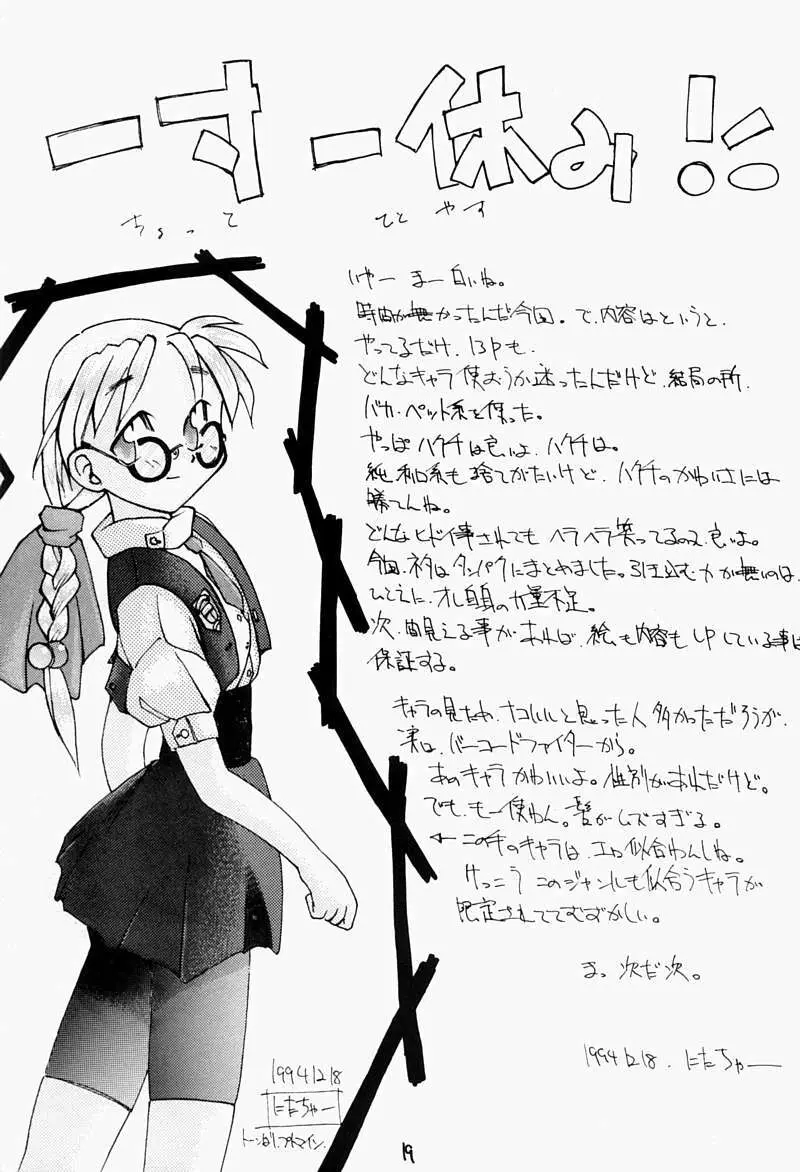 一寸一休み!!
ちょって ひと やす
いやー まー 白いね。
時間が無かったんだ今回。で、内容はというと、
やってるだけ、13Pも、
どんなキャラ使おうか迷ったんだけど、結局の所、
バカ・ペット系を使った。
やっぱハクチは良いよ、ハクチは。
純和系も捨てがたいけど、ハクチのかわいさには
勝てんね。
どんなヒドイ事されてもヘラヘラ笑ってるの、良いよ。
今回、ネタはタンパクにまとめました。引き込む力が無いのは、
ひとえに、オレ自身の力量不足。
次、見える事があれば、絵も内容もUPしている事は
保証する。
キャラの見ため、ナコいいと思った人多かっただろうが、
実は、バーコードファイターから。
あのキャラかわいいよ。性別があれだけど。
でも、も一使わん。髪がムズすぎる。
← この手のキャラは、エロ似合わんしね。
けっこうこのジャンルも似合うキャラが
限定されててむずかしい。
まっ 次だ次。
1994.12.18. にたちゃー
1994.12.18
にたちゃー
19